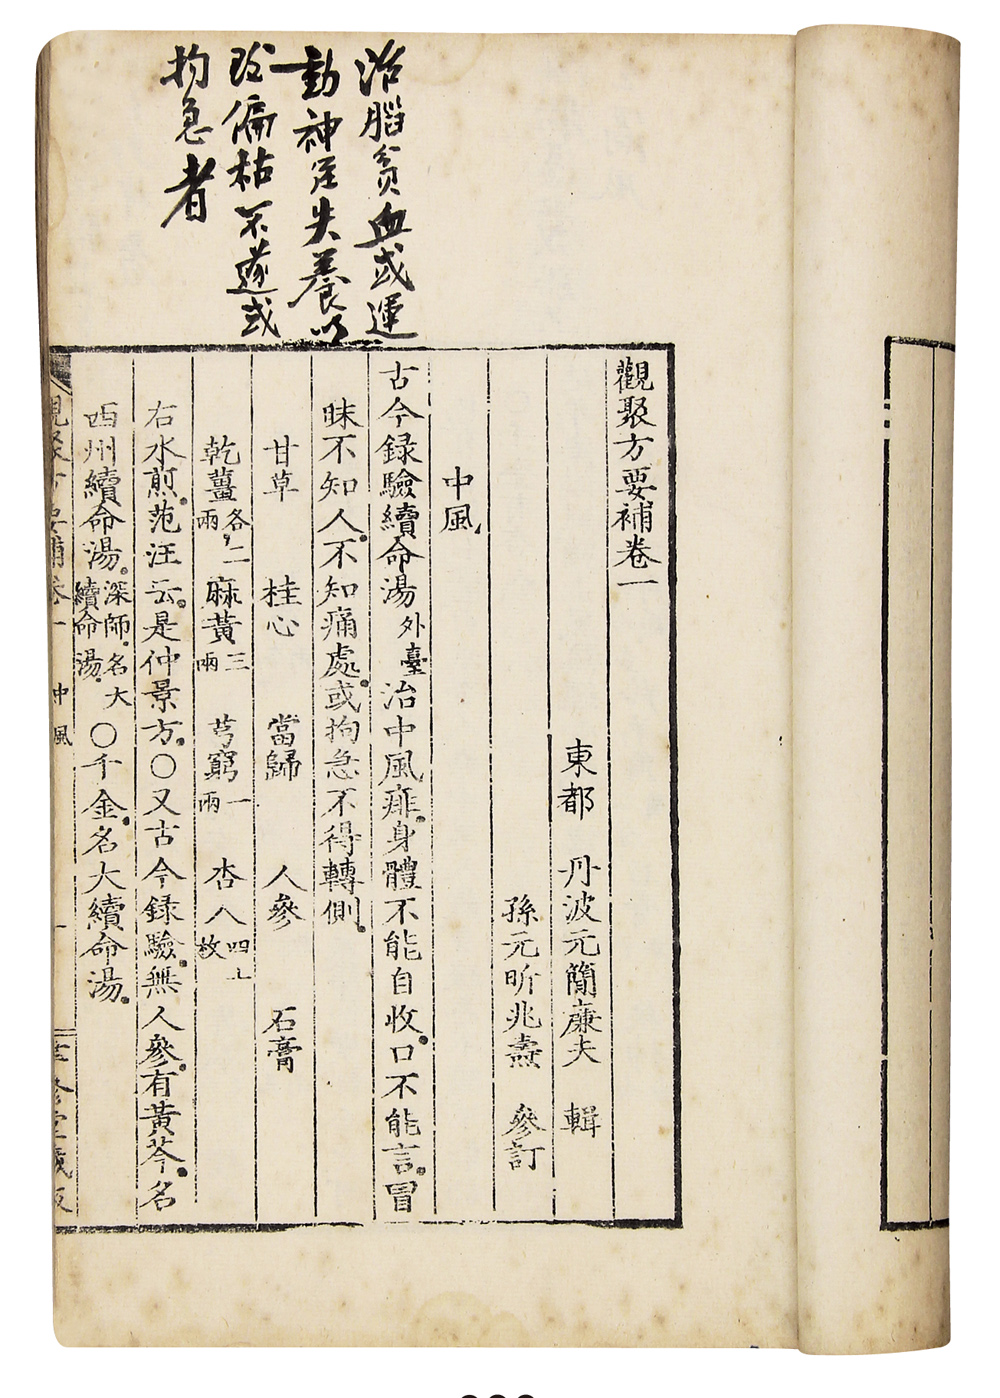 治腦貧血或運
動神經失養以
致偏枯不遂或
拘急者
觀聚方要補卷一
東都 丹波元簡廉夫 輯
孫元昕兆壽 參訂
中風
古今録驗續命湯 外臺 治中風痱。身體不能自收。口不能言。冒
昧不知人。不知痛處。或拘急不得轉側。
甘草 桂心 當歸 人參 石膏
乾薑 各二兩 麻黃 三兩 芎窮 一兩 杏人 四十枚
右水煎。范汪云。是仲景方。○又古今録驗。無人參。有黃芩。名
西州續命湯。深師。名大續命湯。○千金。名大續命湯。
觀聚方要補卷一 中風 一